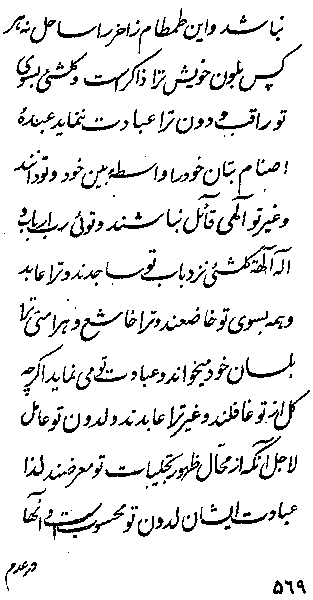 نباشد و این طمطام زاخر را ساحل نه هر
کس بلون خویش ترا ذاکر است و کلشئی بسوی
تو راقب و دون ترا عبادت ننماید عبدهٔ
اصنام بتان خود را واسطهٔ بین خود و تو دانند
و غیر تو الهی قائل نباشند و توئی رب ارباب و
اله آلهة کلشئی نزد باب تو ساجدند و ترا عابد
و همه بسوی تو خاضعند و ترا خاشع و هر امتی ترا
بلسان خود میخواند و عبادت تو می نماید اگرچه
کل از تو غافلند و غیر ترا عابدند و لدون تو عامل
لاجل آنکه از محال ظهور تجلیات تو معرضند لذا
عبادت ایشان لدون تو محسوب است و آنها
در عدم
۵۶۹